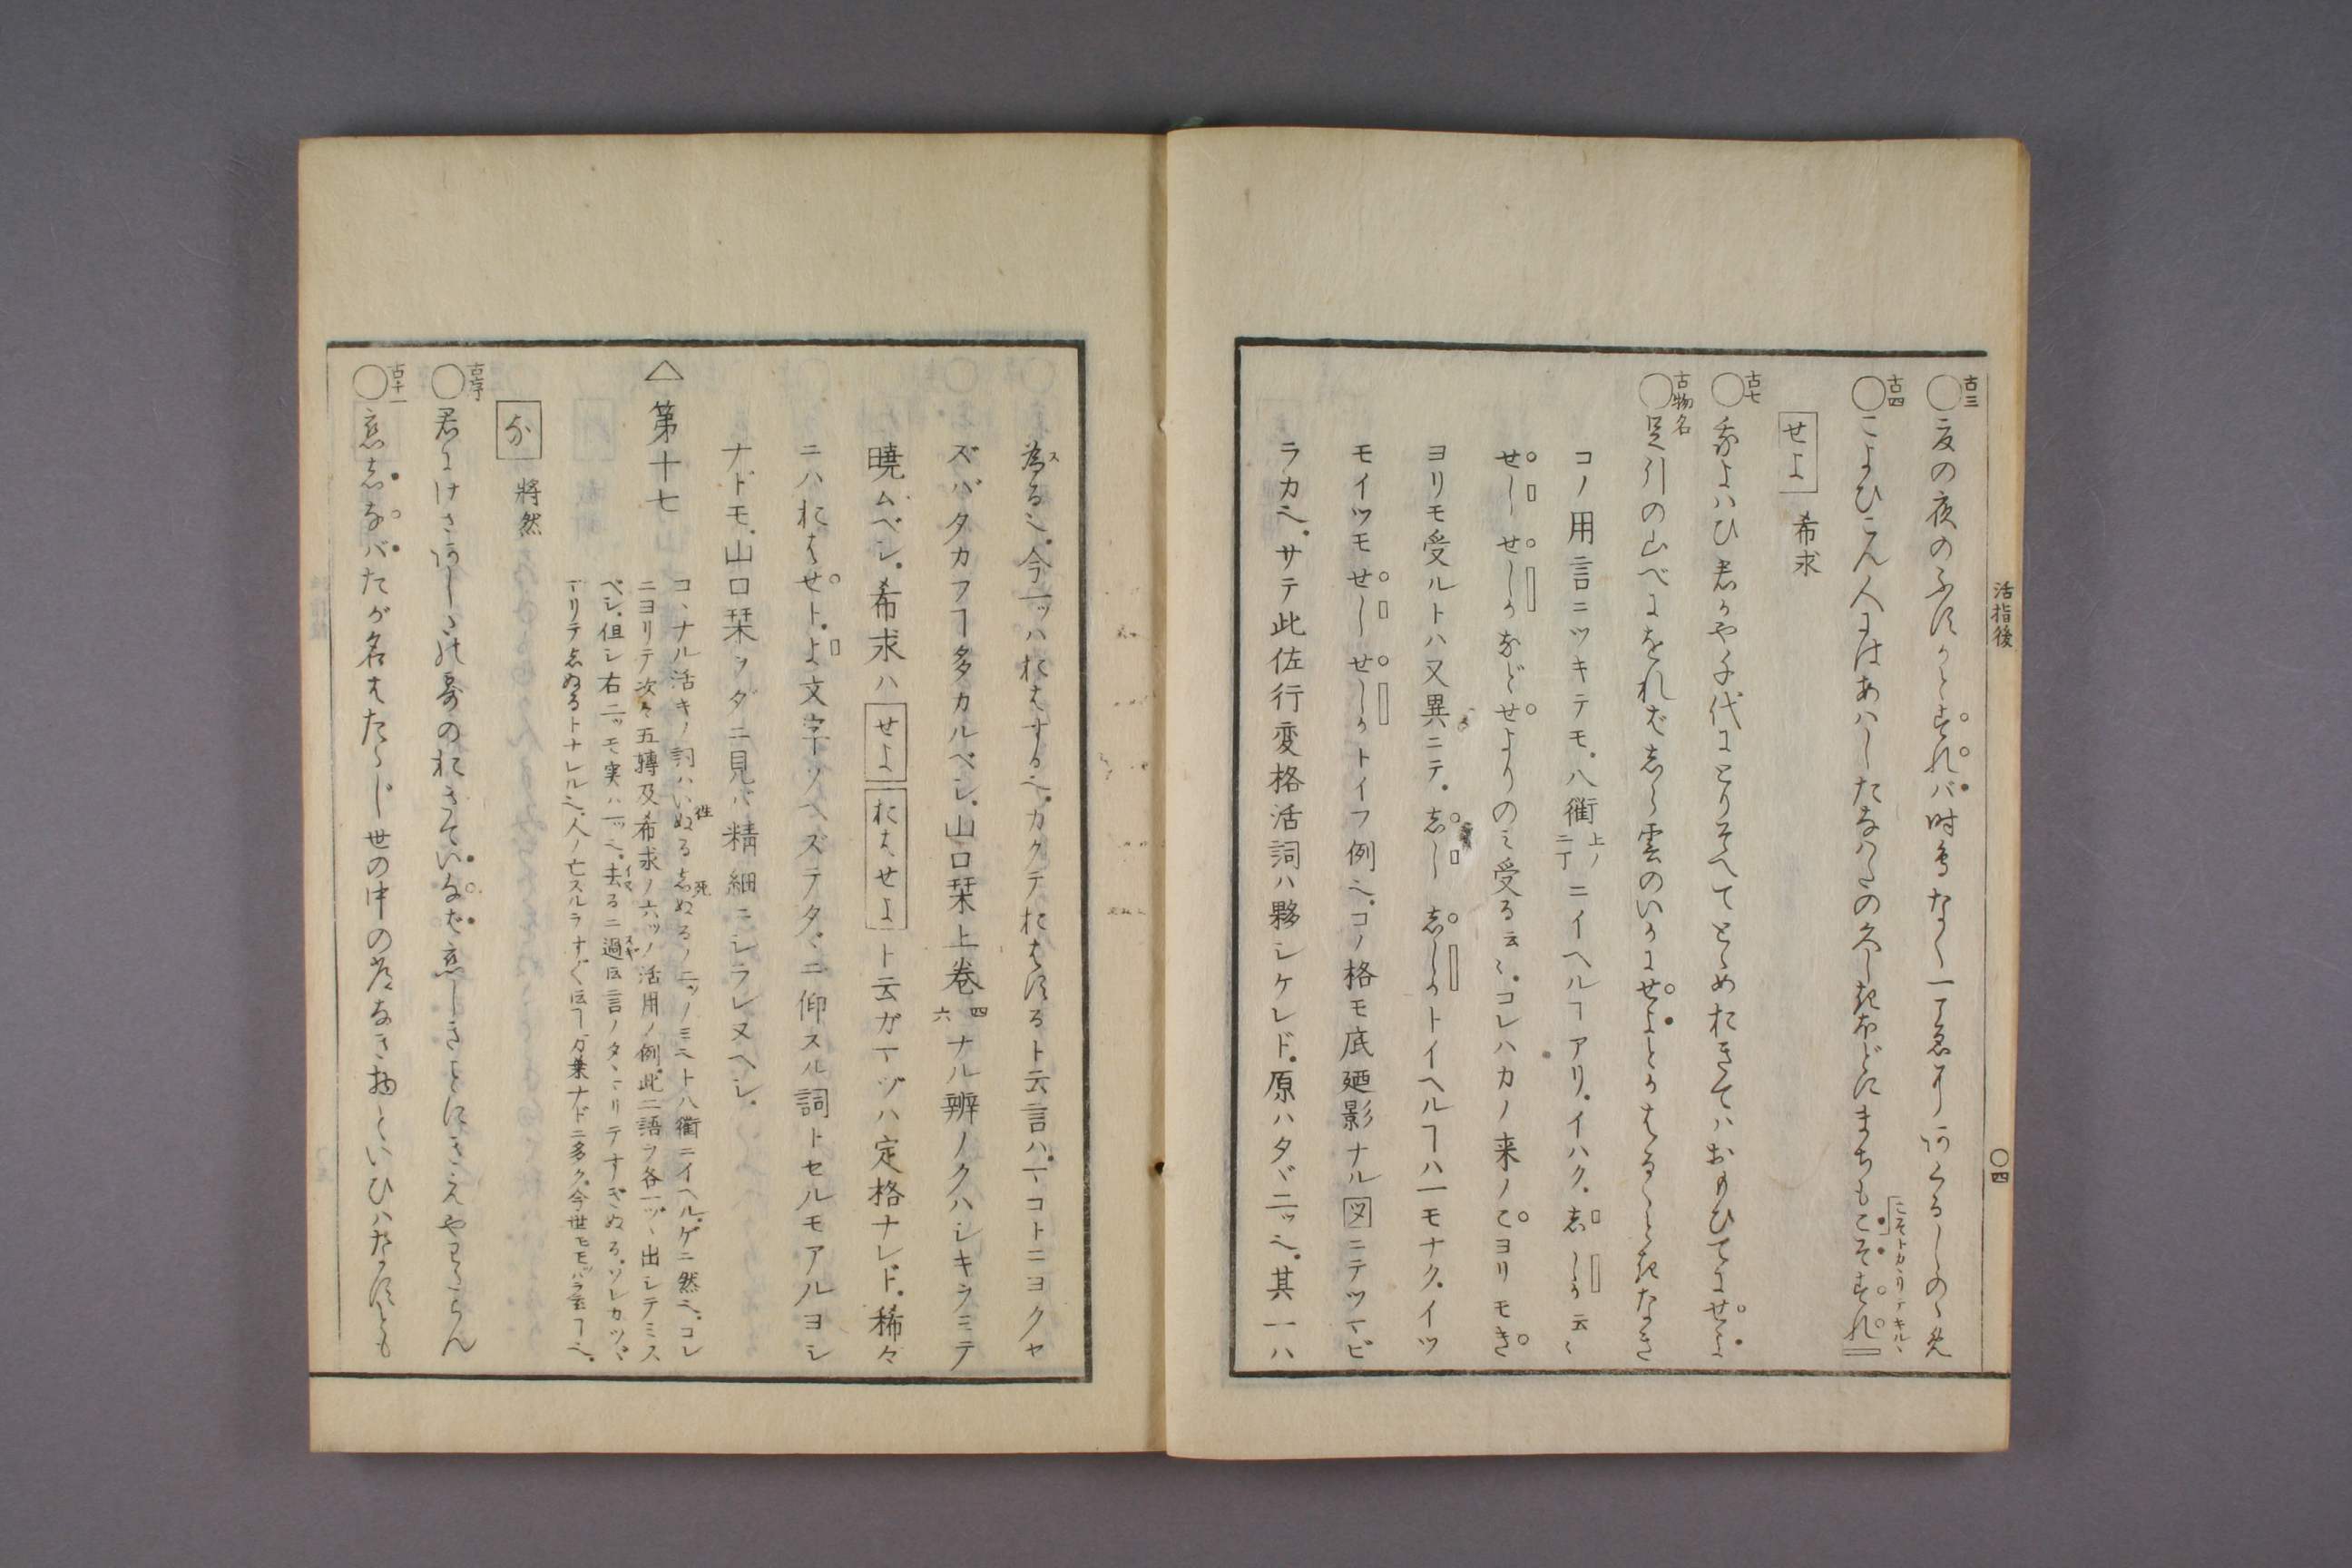 古三
○夏の夜のふすかとすれバ時鳥なく一こゑにあくるしのゝめ
古四
○こよひこん人にはあハしたなバたの久しきほどにまちもこそすれ
こそトカヽリテキル、
せよ 希求
古七
○我よハひ君か八千代にとりそへてとゝめおきてハおもひてにせよ
古物名
○足引の山べにをれバしら雲のいかにせよとかはるゝときなき
コノ用言ニツキテモ、八衢上ノ二丁ニイヘルヿアリ、イハク、志 しか云〻
せし せしかなどせよりのミ受る云〻、コレハカノ来ノこヨリモき
ヨリモ受ルトハ又異ニテ、志し 志しかトイヘルヿハ一モナク、イツ
モイツモせし せしかトイフ例也、コノ格モ底廼影ナル図ニテツマビ
ラカ也、サテ此佐行変格活詞ハ夥シケレド、原ハタヾ二ッ也、其一ハ
活指後
○四
為る也、今一ッハおはする也、カクテおはするト云言ハ、マコトニヨクセ
ズバタカフヿ多カルベシ、山口栞上巻四六ナル辨ノクハシキヲミテ
暁ムベシ、希求ハせよおはせよト云ガマヅハ定格ナレド、稀々
ニハおはせト、よ文字ソヘズテタヾニ仰スル詞トセルモアルヨシ
ナドモ、山口栞ヲダニ見バ精細ニシラレヌヘシ、
△第十七
コヽナル活キノ詞ハいぬる往志ぬる死ノ二ッノミ也ト八衢ニイヘル、ゲニ然也、コレ
ニヨリテ次々五轉及希求ノ六ッノ活用ノ例、此二語ヲ各一ッヽ出シテミス
ベシ、但シ右二ッモ実ハ一ッ也、去るニ過云言ノタヽマリテすぎぬる、ソレカツヾ
マリテ志ぬるトナレル也、人ノ亡スルヲすぐ云ヿ、万葉ナドニ多ク、今世モモハラ云ヿ也、
な 将然
古序
○君にけさあしたの霧のおきていなば恋しきことにきえやわたらん
古十一
○恋志なバたが名はたゝじ世の中の常なき物といひハなすとも